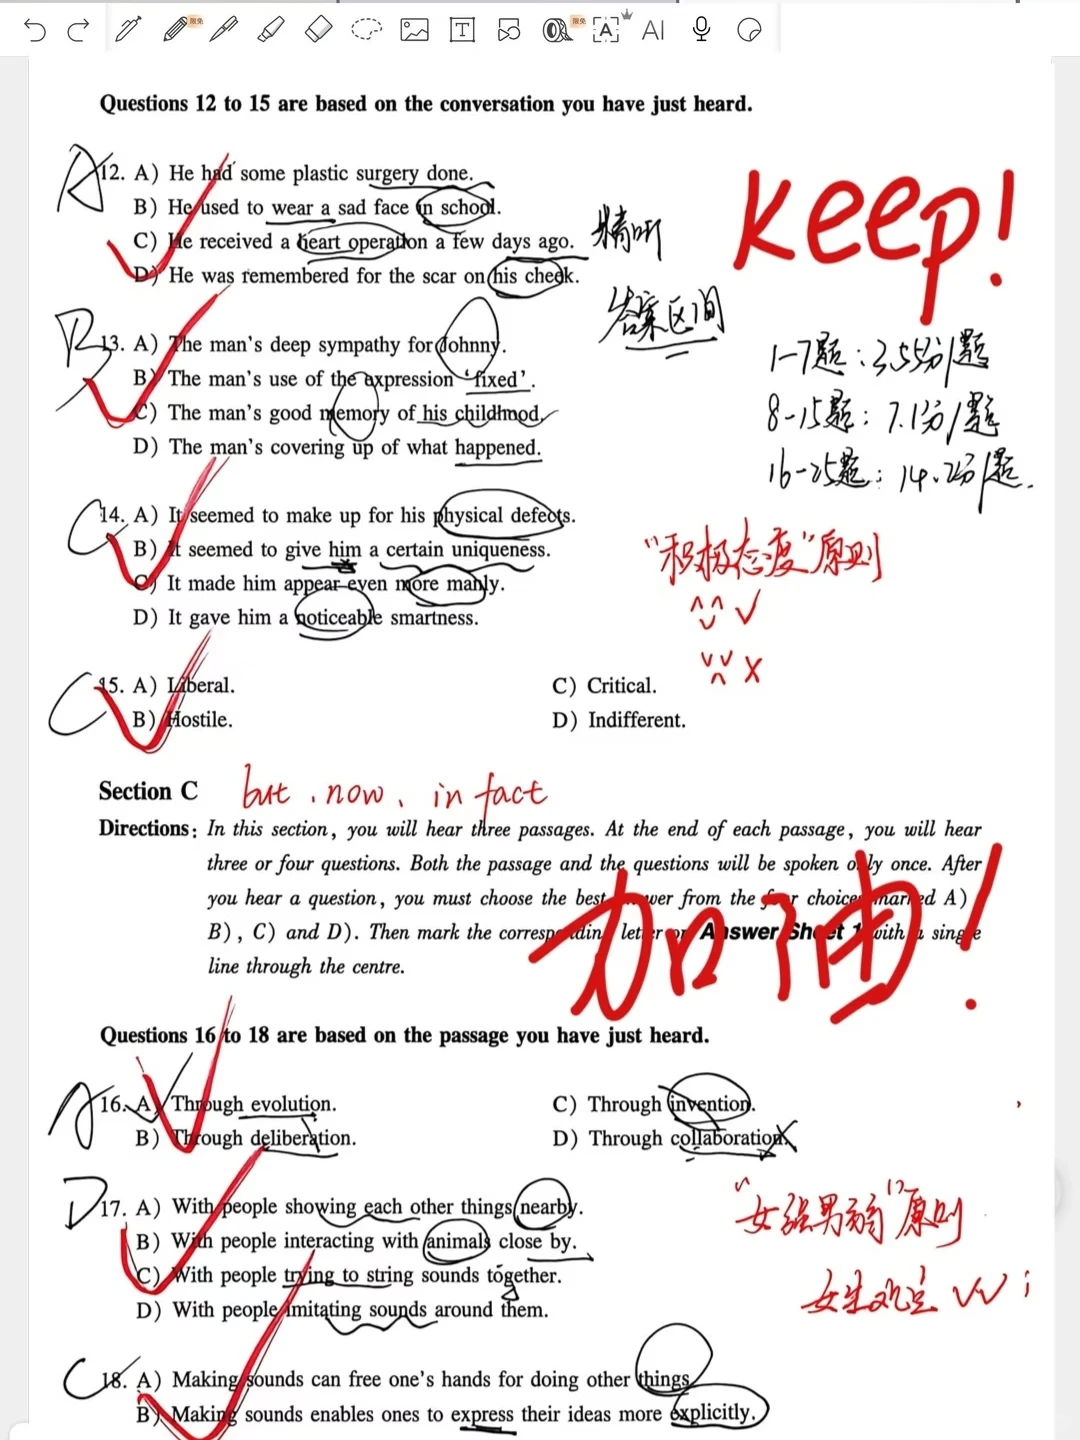 限免
限免
T
A
AI
Questions 12 to 15 are based on the conversation you have just heard.
A
12. A) He had some plastic surgery done.
B) He used to wear a sad face in school.
C) He received a heart operation a few days ago.
D) He was remembered for the scar on his cheek.
Keep!
精听
答案区间
B
13. A) The man's deep sympathy for Johnny.
B) The man's use of the expression 'fixed'.
C) The man's good memory of his childhood.
D) The man's covering up of what happened.
1-7题:3.55分/题
8-15题:7.1分/题
16-25题:14.2分/题.
C
14. A) It seemed to make up for his physical defects.
B) It seemed to give him a certain uniqueness.
C) It made him appear even more manly.
D) It gave him a noticeable smartness.
“积极态度”原则
C
15. A) Liberal.
B) Hostile.
C) Critical.
D) Indifferent.
Section C
but、now、in fact
Directions: In this section, you will hear three passages. At the end of each passage, you will hear
three or four questions. Both the passage and the questions will be spoken only once. After
you hear a question, you must choose the best answer from the four choices marked A)
B), C) and D). Then mark the corresponding letter on Answer Sheet 1 with a single
line through the centre.
加油!
Questions 16 to 18 are based on the passage you have just heard.
A
16. A) Through evolution.
B) Through deliberation.
C) Through invention.
D) Through collaboration.
D
17. A) With people showing each other things nearby.
B) With people interacting with animals close by.
C) With people trying to string sounds together.
D) With people imitating sounds around them.
“女强男弱”原则
女生观点
C
18. A) Making sounds can free one's hands for doing other things.
B) Making sounds enables ones to express their ideas more explicitly.